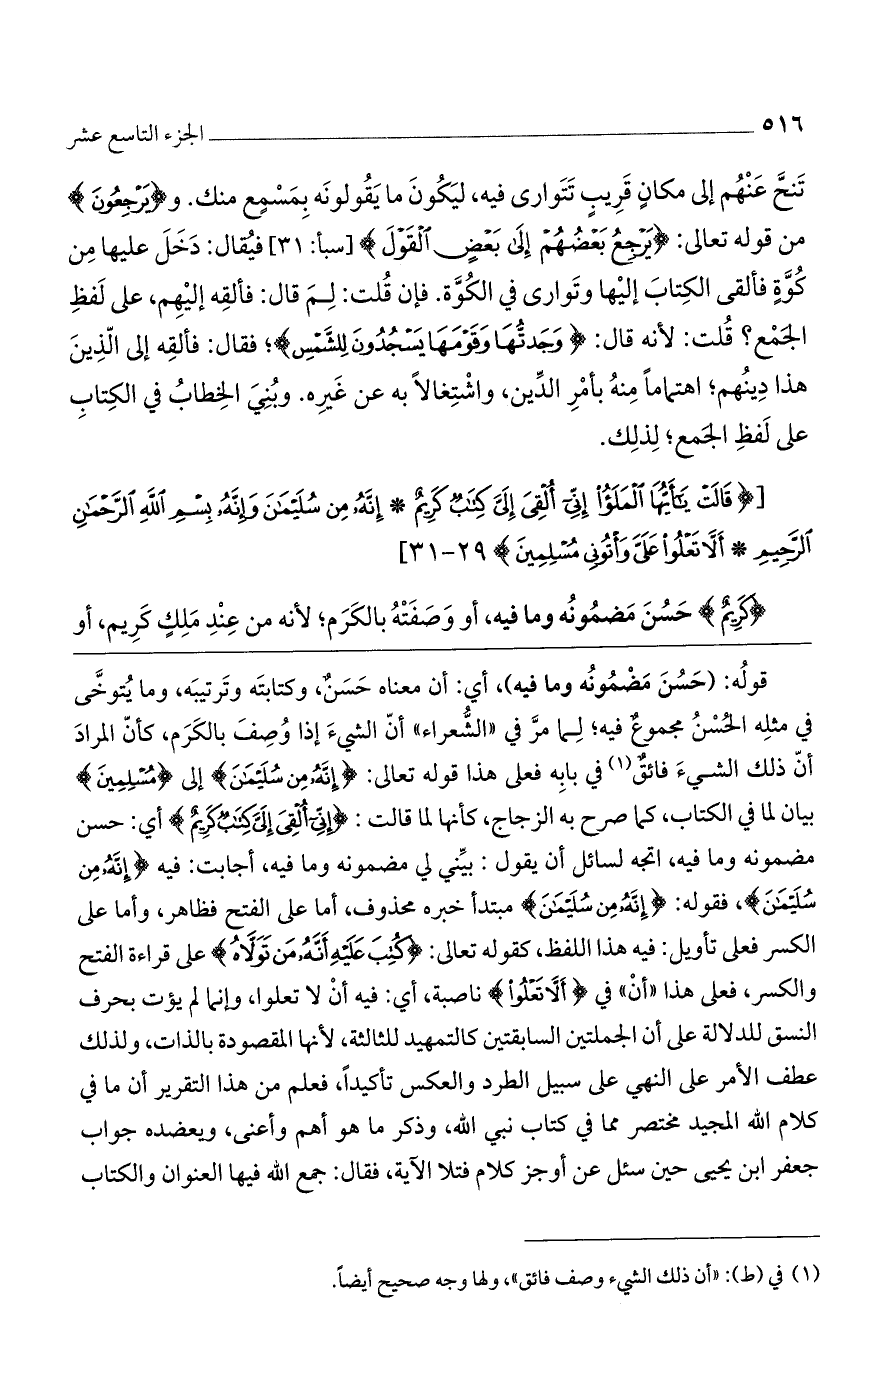 ٥١٦ الجزء التاسع عشر
تَنحَّ عَنْهُم إلى مكانٍ قَرِيبٍ تَتَوارى فيه، ليَكُونَ ما يَقُولونَه بِمَسْمِعٍ منك. و﴿يَرْجِعُونَ﴾
من قوله تعالى: ﴿يَرْجِعُ بَعْضُهُمْ إِلَىٰ بَعْضٍ ٱلْقَوْلَ﴾ [سبأ: ٣١] فيُقال: دَخَلَ عليها مِن
كُوَّةٍ فألقى الكِتابَ إليْها وتَوارى في الكُوَّة. فإن قُلت: لِـمَ قال: فألقِه إليْهِم، على لَفظِ
الجَمْع؟ قُلت: لأنه قال: ﴿وَجَدتُّهَا وَقَوْمَهَا يَسْجُدُونَ لِلشَّمْسِ﴾؛ فقال: فألقِه إلى الّذِينَ
هذا دِينُهم؛ اهتماماً مِنهُ بأمْرِ الدِّين، واشْتِغالاً به عن غَيرِه. وبُنِيَ الخِطابُ في الكِتابِ
على لَفظِ الجَمع؛ لِذلِك.
[﴿قَالَتْ يَٰٓأَيُّهَا ٱلْمَلَؤُا۟ إِنِّىٓ أُلْقِىَ إِلَىَّ كِتَٰبٌ كَرِيمٌ * إِنَّهُۥ مِن سُلَيْمَٰنَ وَإِنَّهُۥ بِسْمِ ٱللَّهِ ٱلرَّحْمَٰنِ
ٱلرَّحِيمِ * أَلَّا تَعْلُوا۟ عَلَىَّ وَأْتُونِى مُسْلِمِينَ﴾ ٢٩-٣١]
﴿كَرِيمٌ﴾ حَسُنَ مَضمُونُه وما فيه، أو وَصَفَتْهُ بالكَرَم؛ لأنه من عِنْدِ مَلِكٍ كَرِيم، أو
قولُه: (حَسُنَ مَضْمُونُه وما فيه)، أي: أن معناه حَسَنٌ، وكتابتَه وتَرتيبَه، وما يُتوخَّى
في مثلِه الحُسْنُ مجموعٌ فيه؛ لِـما مرَّ في «الشُّعراء» أنّ الشيءَ إذا وُصِفَ بالكَرَم، كأنّ المرادَ
أنّ ذلك الشـيءَ فائقٌ(١) في بابِه فعلى هذا قوله تعالى: ﴿إِنَّهُۥ مِن سُلَيْمَٰنَ﴾ إلى ﴿مُسْلِمِينَ﴾
بيان لما في الكتاب، كما صرح به الزجاج، كأنها لما قالت: ﴿إِنِّىٓ أُلْقِىَ إِلَىَّ كِتَٰبٌ كَرِيمٌ﴾ أي: حسن
مضمونه وما فيه، اتجه لسائل أن يقول: بيِّني لي مضمونه وما فيه، أجابت: فيه ﴿إِنَّهُۥ مِن
سُلَيْمَٰنَ﴾، فقوله: ﴿إِنَّهُۥ مِن سُلَيْمَٰنَ﴾ مبتدأ خبره محذوف، أما على الفتح فظاهر، وأما على
الكسر فعلى تأويل: فيه هذا اللفظ، كقوله تعالى: ﴿كُتِبَ عَلَيْهِ أَنَّهُۥ مَن تَوَلَّاهُ﴾ على قراءة الفتح
والكسر، فعلى هذا «أنْ» في ﴿أَلَّا تَعْلُوا۟﴾ ناصبة، أي: فيه أنْ لا تعلوا، وإنما لم يؤت بحرف
النسق للدلالة على أن الجملتين السابقتين كالتمهيد للثالثة، لأنها المقصودة بالذات، ولذلك
عطف الأمر على النهي على سبيل الطرد والعكس تأكيداً، فعلم من هذا التقرير أن ما في
كلام الله المجيد مختصر مما في كتاب نبي الله، وذكر ما هو أهم وأعنى، ويعضده جواب
جعفر ابن يحيى حين سئل عن أوجز كلام فتلا الآية، فقال: جمع الله فيها العنوان والكتاب
(١) في (ط): «أن ذلك الشيء وصف فائق»، ولها وجه صحيح أيضاً.